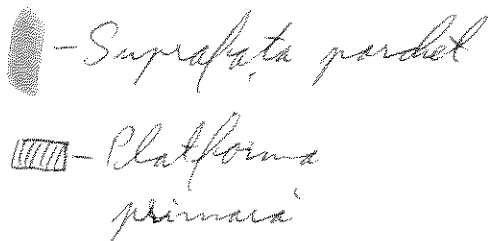 - Suprafața parchet
- Platforma
primară